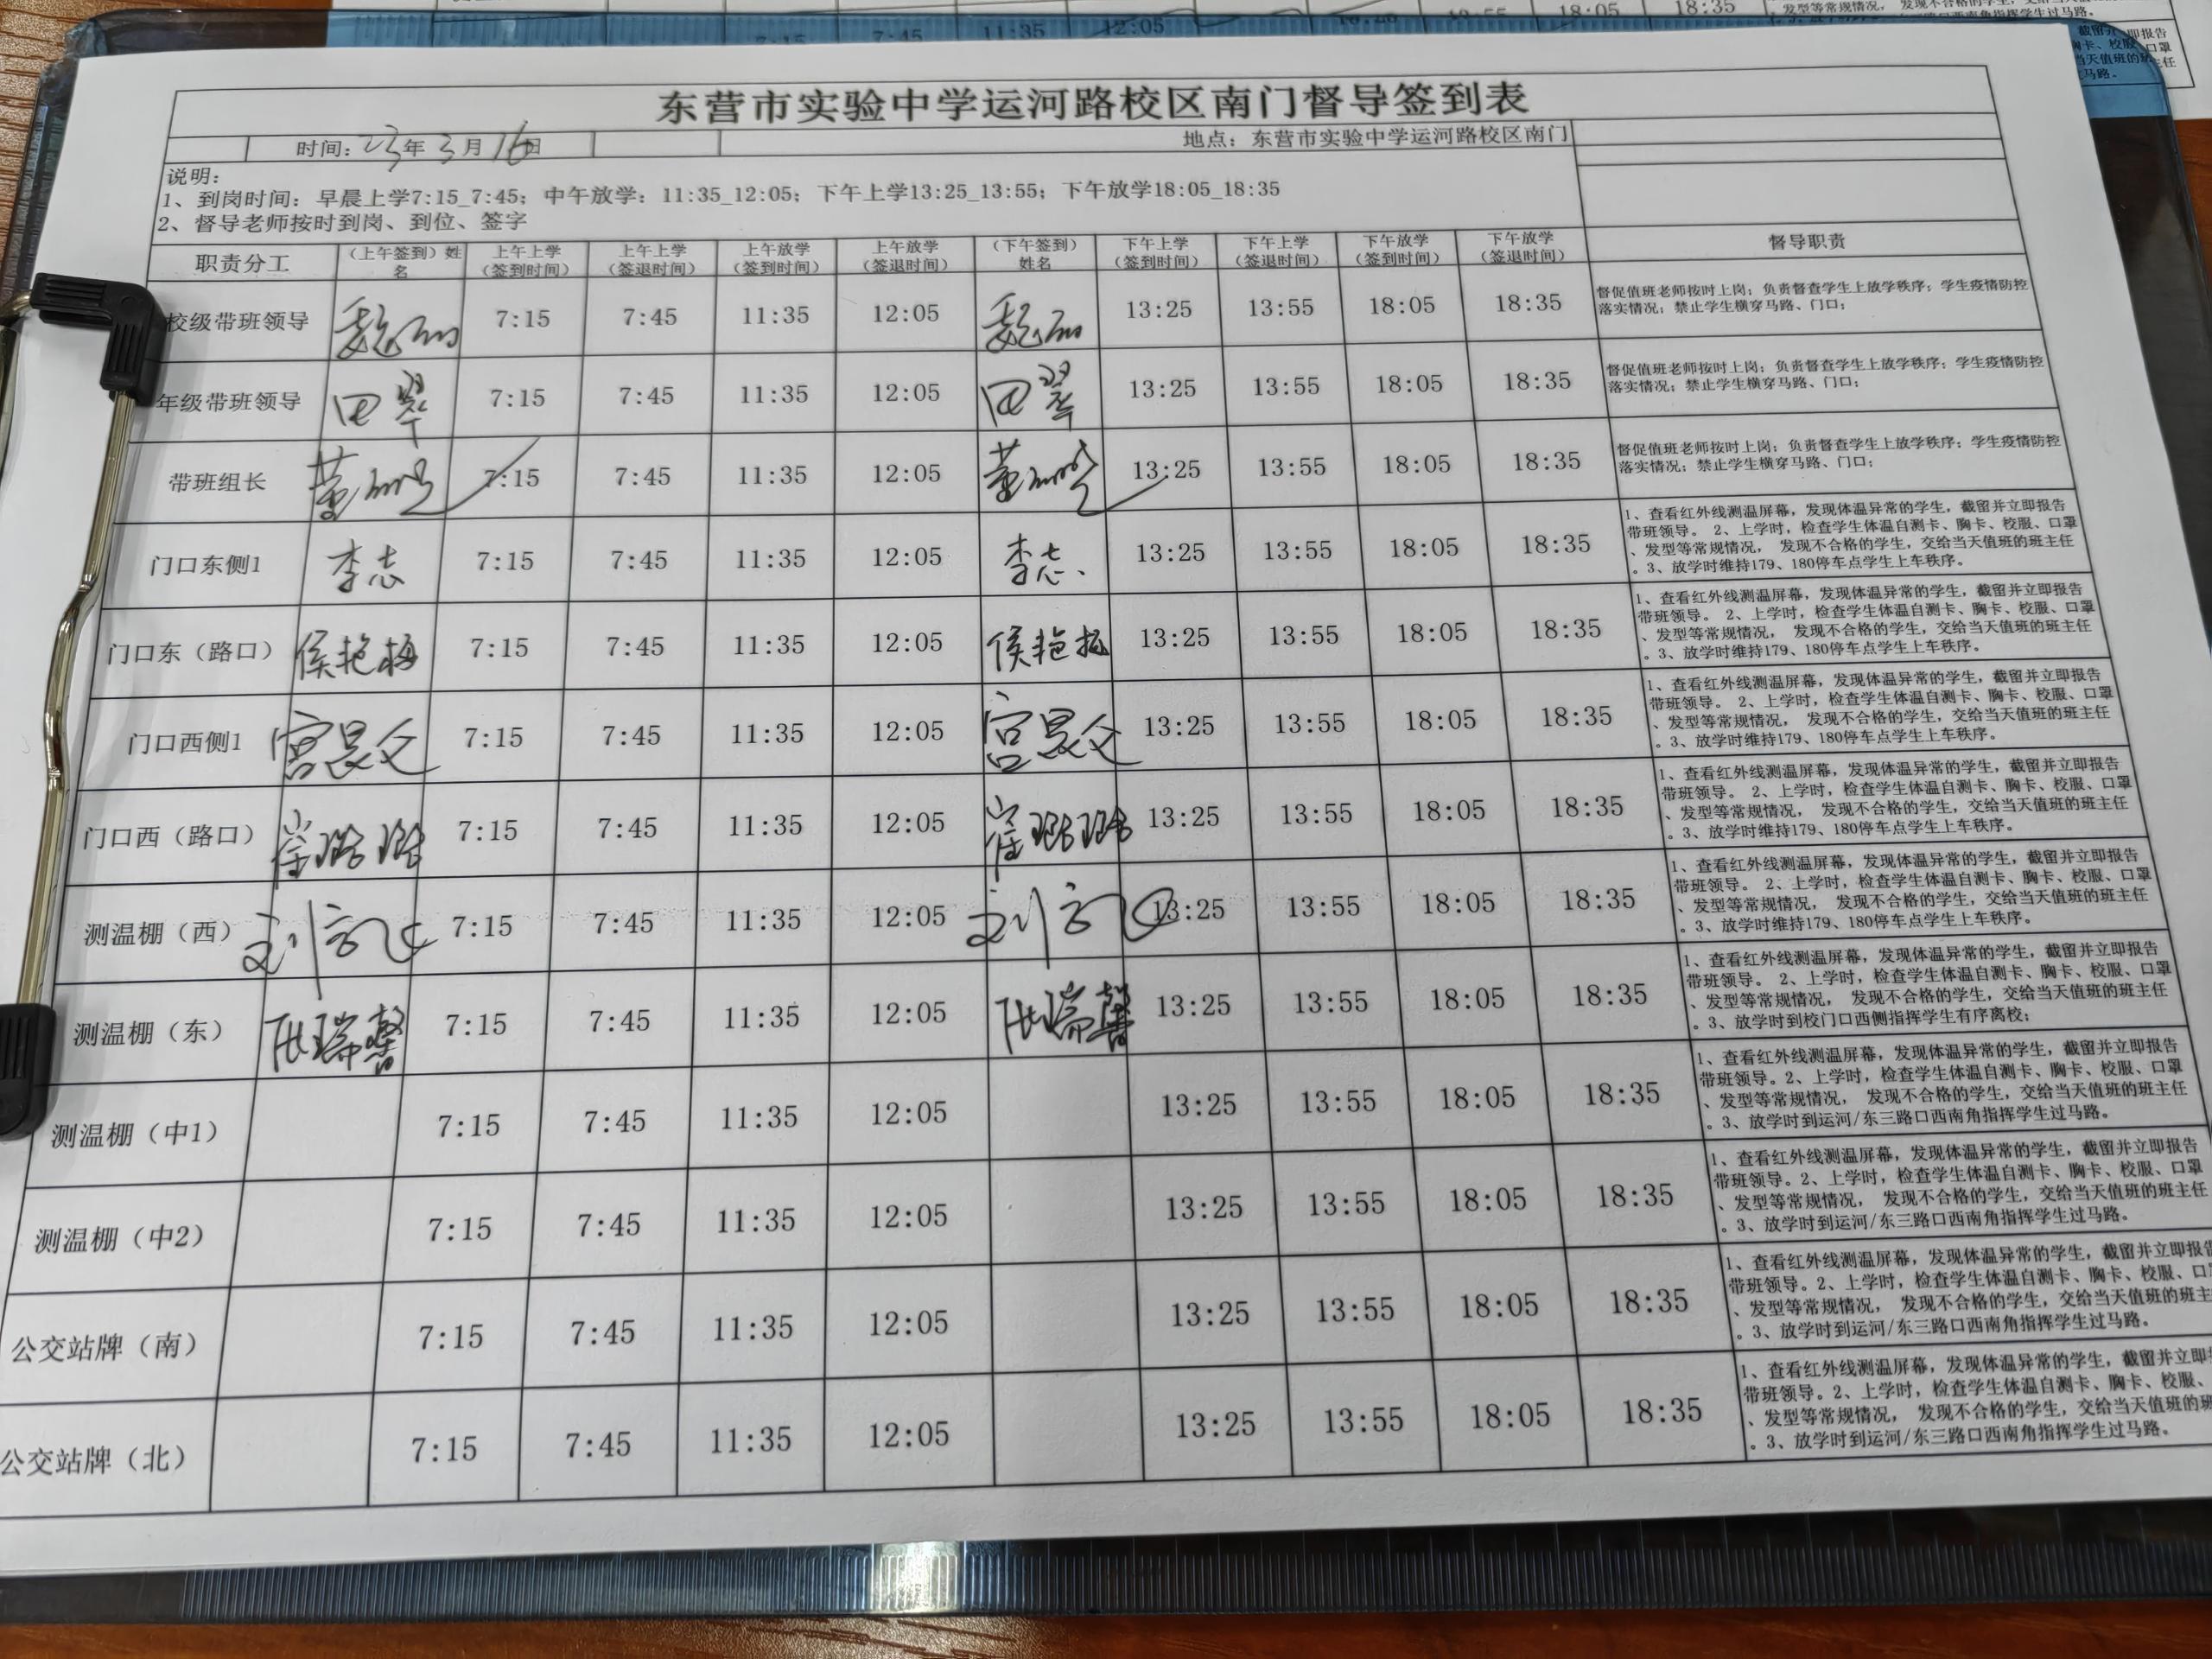 7:15 7:45 11:35 12:05 18:05 18:35
发型等常规情况， 发现不合格的学生，交给
东营市实验中学运河路校区南门督导签到表
时间：23年3月16日 地点：东营市实验中学运河路校区南门
说明：
1、到岗时间：早晨上学7:15_7:45；中午放学：11:35_12:05；下午上学13:25_13:55；下午放学18:05_18:35
2、督导老师按时到岗、到位、签字
职责分工 （上午签到）姓名 上午上学（签到时间） 上午上学（签退时间） 上午放学（签到时间） 上午放学（签退时间） （下午签到）姓名 下午上学（签到时间） 下午上学（签退时间） 下午放学（签到时间） 下午放学（签退时间） 督导职责
校级带班领导 7:15 7:45 11:35 12:05 13:25 13:55 18:05 18:35 督促值班老师按时上岗；负责督查学生上放学秩序；学生疫情防控
落实情况；禁止学生横穿马路、门口；
年级带班领导 田翠 7:15 7:45 11:35 12:05 田翠 13:25 13:55 18:05 18:35 督促值班老师按时上岗；负责督查学生上放学秩序；学生疫情防控
落实情况；禁止学生横穿马路、门口；
带班组长 7:15 7:45 11:35 12:05 13:25 13:55 18:05 18:35 督促值班老师按时上岗；负责督查学生上放学秩序；学生疫情防控
落实情况；禁止学生横穿马路、门口；
门口东侧1 李志 7:15 7:45 11:35 12:05 李志 13:25 13:55 18:05 18:35 1、查看红外线测温屏幕，发现体温异常的学生，截留并立即报告
带班领导。 2、上学时，检查学生体温自测卡、胸卡、校服、口罩
、发型等常规情况， 发现不合格的学生，交给当天值班的班主任
。3、放学时维持179、180停车点学生上车秩序。
门口东（路口） 侯艳梅 7:15 7:45 11:35 12:05 侯艳梅 13:25 13:55 18:05 18:35 1、查看红外线测温屏幕，发现体温异常的学生，截留并立即报告
带班领导。 2、上学时，检查学生体温自测卡、胸卡、校服、口罩
、发型等常规情况， 发现不合格的学生，交给当天值班的班主任
。3、放学时维持179、180停车点学生上车秩序。
门口西侧1 7:15 7:45 11:35 12:05 13:25 13:55 18:05 18:35 1、查看红外线测温屏幕，发现体温异常的学生，截留并立即报告
带班领导。 2、上学时，检查学生体温自测卡、胸卡、校服、口罩
、发型等常规情况， 发现不合格的学生，交给当天值班的班主任
。3、放学时维持179、180停车点学生上车秩序。
门口西（路口） 崔璐璐 7:15 7:45 11:35 12:05 崔璐璐 13:25 13:55 18:05 18:35 1、查看红外线测温屏幕，发现体温异常的学生，截留并立即报告
带班领导。 2、上学时，检查学生体温自测卡、胸卡、校服、口罩
、发型等常规情况， 发现不合格的学生，交给当天值班的班主任
。3、放学时维持179、180停车点学生上车秩序。
测温棚（西） 7:15 7:45 11:35 12:05 13:25 13:55 18:05 18:35 1、查看红外线测温屏幕，发现体温异常的学生，截留并立即报告
带班领导。 2、上学时，检查学生体温自测卡、胸卡、校服、口罩
、发型等常规情况， 发现不合格的学生，交给当天值班的班主任
。3、放学时维持179、180停车点学生上车秩序。
测温棚（东） 张瑞馨 7:15 7:45 11:35 12:05 张瑞馨 13:25 13:55 18:05 18:35 1、查看红外线测温屏幕，发现体温异常的学生，截留并立即报告
带班领导。 2、上学时，检查学生体温自测卡、胸卡、校服、口罩
、发型等常规情况， 发现不合格的学生，交给当天值班的班主任
。3、放学时到校门口西侧指挥学生有序离校；
测温棚（中1） 7:15 7:45 11:35 12:05 13:25 13:55 18:05 18:35 1、查看红外线测温屏幕，发现体温异常的学生，截留并立即报告
带班领导。2、上学时，检查学生体温自测卡、胸卡、校服、口罩
、发型等常规情况， 发现不合格的学生，交给当天值班的班主任
。3、放学时到运河/东三路口西南角指挥学生过马路。
测温棚（中2） 7:15 7:45 11:35 12:05 13:25 13:55 18:05 18:35 1、查看红外线测温屏幕，发现体温异常的学生，截留并立即报告
带班领导。2、上学时，检查学生体温自测卡、胸卡、校服、口罩
、发型等常规情况， 发现不合格的学生，交给当天值班的班主任
。3、放学时到运河/东三路口西南角指挥学生过马路。
公交站牌（南） 7:15 7:45 11:35 12:05 13:25 13:55 18:05 18:35 1、查看红外线测温屏幕，发现体温异常的学生，截留并立即报告
带班领导。2、上学时，检查学生体温自测卡、胸卡、校服、口
、发型等常规情况， 发现不合格的学生，交给当天值班的班主
。3、放学时到运河/东三路口西南角指挥学生过马路。
公交站牌（北） 7:15 7:45 11:35 12:05 13:25 13:55 18:05 18:35 1、查看红外线测温屏幕，发现体温异常的学生，截留并立即
带班领导。2、上学时，检查学生体温自测卡、胸卡、校服、
、发型等常规情况， 发现不合格的学生，交给当天值班的班
。3、放学时到运河/东三路口西南角指挥学生过马路。